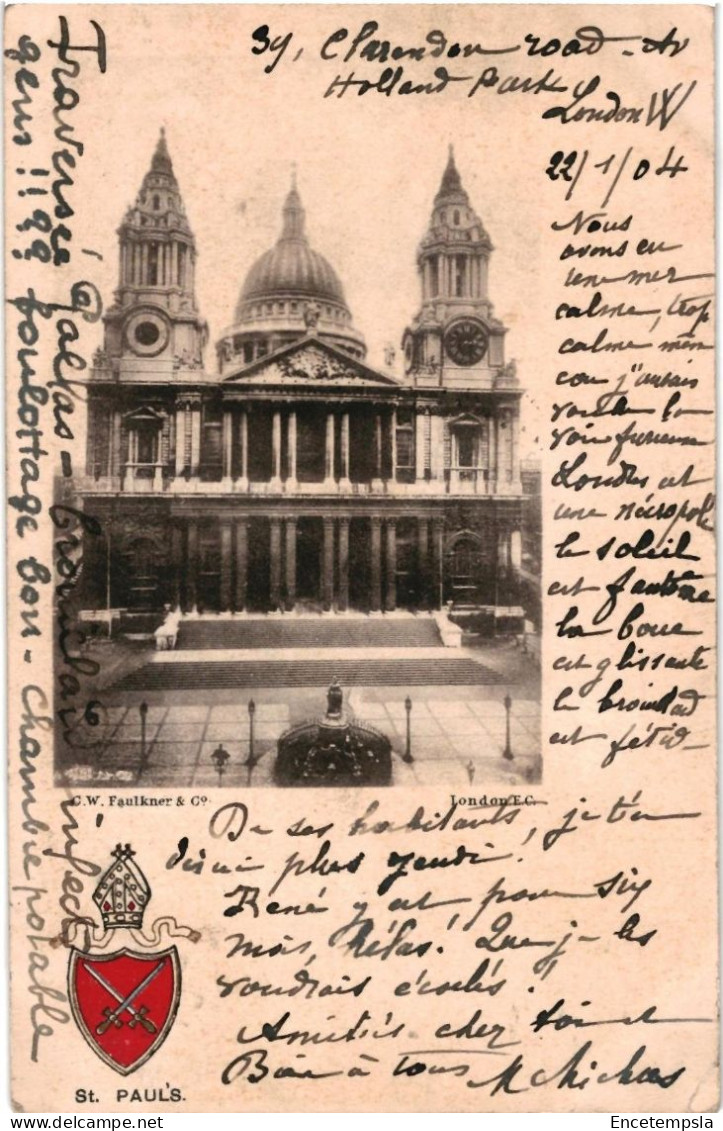 39, Clarendon road
Holland Park
London W
22/1/04
Nous
avons eu
une mer
calme, trop
calme même
car j'aurais
voulu la
voir furieuse
Londres est
une nécropole
le soleil
est fantôme
la boue
est glissante
le brouillard
est fétide
C.W. Faulkner & Co.
London E.C.
De ses habitants, je t'en
dirai plus jeudi!
René y est pour six
mois, hélas! Que je les
voudrais écoulés!
Amitiés chez toi et
Bien à tous
St. PAUL'S.
Traversée
gens !! 99 boulottage bon - chambre potable
brouillard
infect
Encetempsla